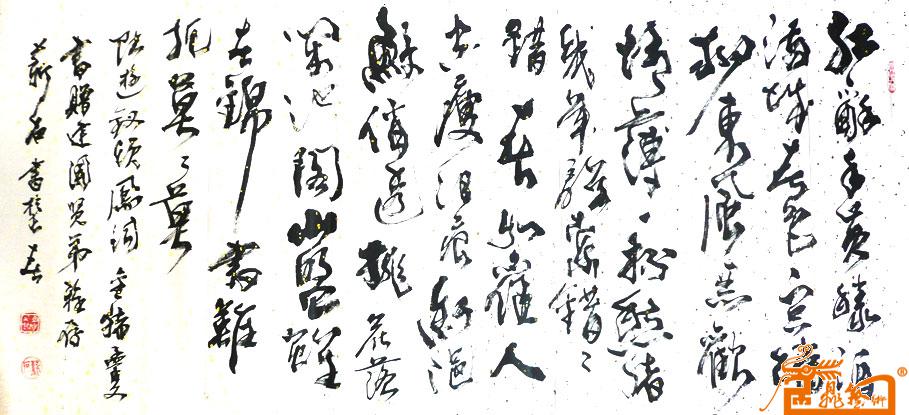 紅酥手黄縢酒
滿城春色宫墻
柳東風惡歡
情薄一懷愁緒
幾年離索錯々
錯春如舊人
空瘦淚痕紅浥
鮫綃透桃花落
閑池閣山盟雖
在錦書難
托莫々莫
陸遊釵頭鳳詞
書贈建國兄弟雅存
石書於